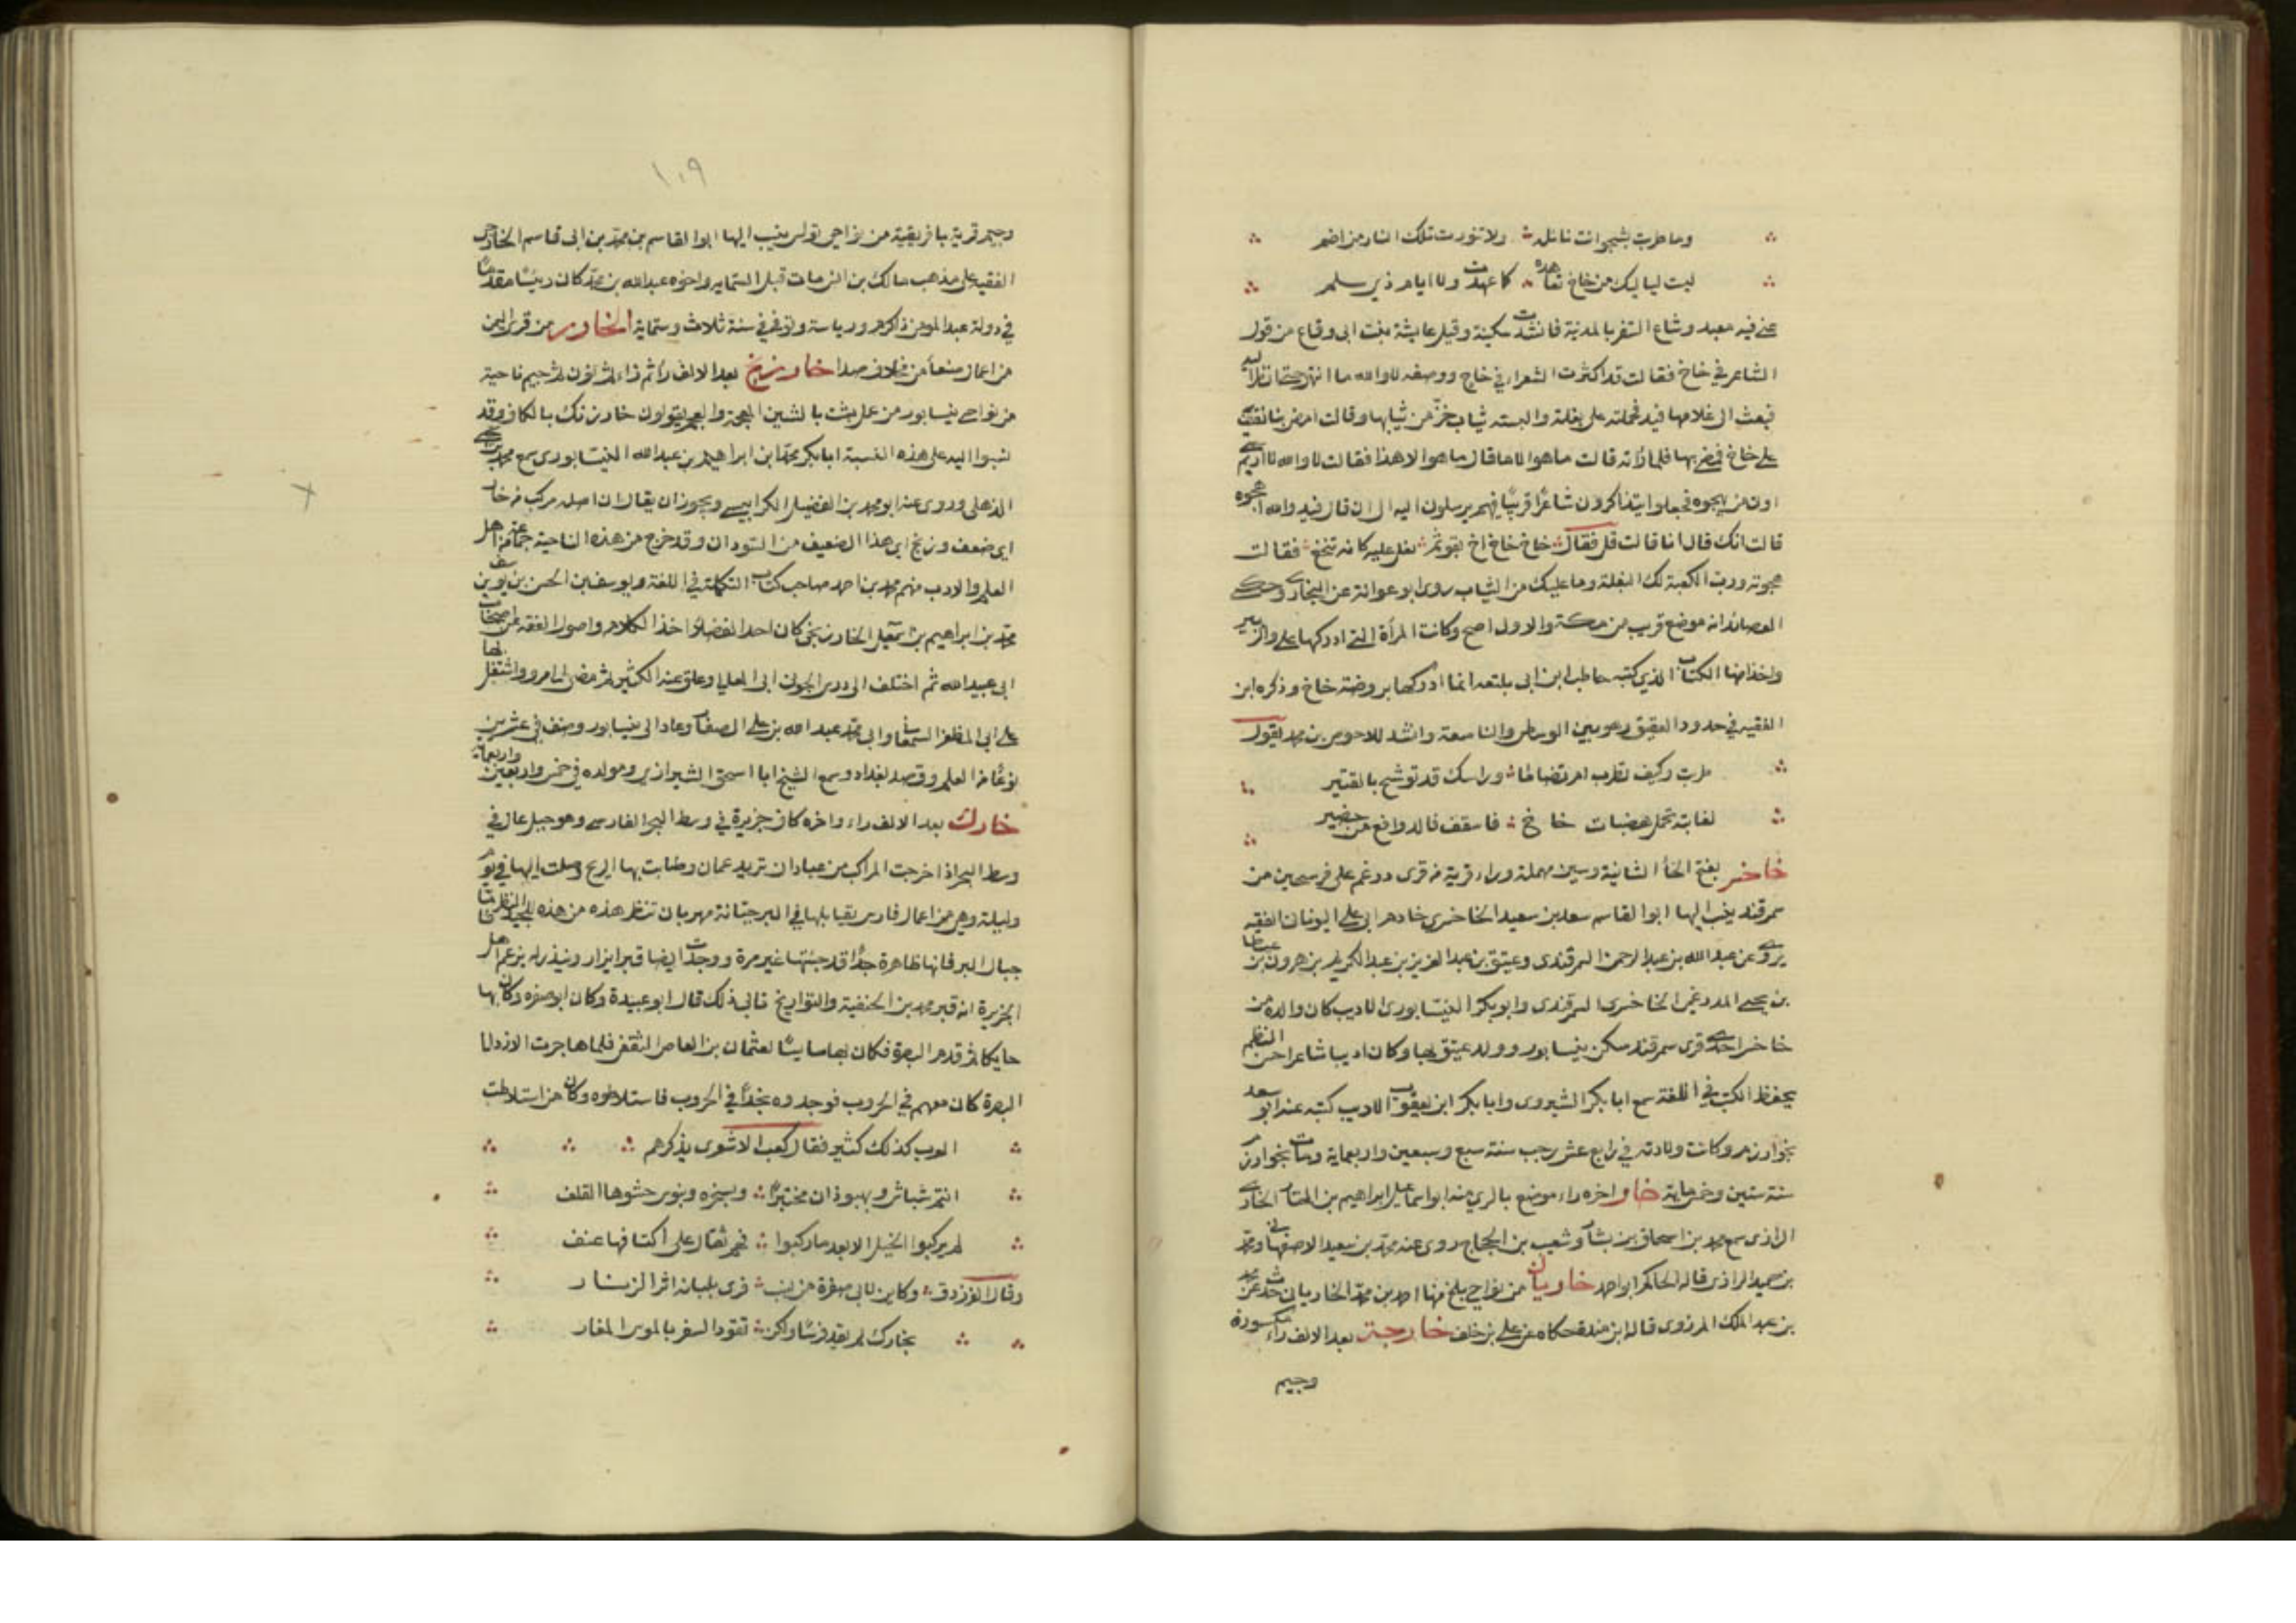 وما طربت بشجو انت نائله ولا تنورت تلك النار من اضم
ليت لياليك من خاخ كما عهدت ولا ايام ذي سلم
فيه معبد وشاع الشعر بالمدينة فانشدت سكينة وقيل عايشة بنت ابي وقاص قول
الشاعر في خاخ فقالت قد اكثرت الشعراء في خاخ ووصفه لا والله ما انتهي حتى انظر اليه
فبعثت الى غلامها فند فحملته على بغلة والبسته ثياب خز من ثيابها وقالت امض بنا نقف
على خاخ فمضى بها فلما راته قالت ما هو الا ما قال ما هو الا هذا فقالت لا والله لا اريم
اوتى من يهجوه فجعلوا يتذاكرون شاعرا قريبا منهم يرسلون اليه الى ان قال فند والله اهجوه
قالت انت قال انا قالت قل فقال خاخ خاخ اخ بقو ثم تفل عليه كانه تنخع فقالت
هجوته ورب الكعبة لك البغلة وما عليك من الثياب روى ابو عوانة عن البخاري
انه موضع قريب من مكة والاول اصح وكانت المرأة التي ادركها علي والزبير
واخذا منها الكتاب الذي كتبه حاطب ابن ابي بلتعه انما ادركها بروضة خاخ وذكره ابن
الفقيه في حدود العقيق وهو بين الشوطى والناصعة وانشد للاحوص بن محمد يقول
طربت وكيف تطرب ام تصابا وراسك قد توشح بالقتير
لغانية تحل هضبات خاخ فاسقف فالدوافع من حضير
خاخسر بفتح الخاء الثانية وسين مهملة وراء قرية من قرى درغم على فرسخين من
سمرقند ينسب اليها ابو القاسم سعد بن سعيد الخاخسري خادم ابي علي اليوناني الفقيه
يروي عن عبد الله بن عبد الرحمن السمرقندي وعتيق بن عبد العزيز بن عبد الكريم بن هرون بن عطا
بن يحيى الدرغمي الخاخسري السمرقندي وابو بكر النيسابوري الاديب كان والده من
خاخسر احدى قرى سمرقند سكن نيسابور وولد عتيق بها وكان اديبا شاعرا حسن النظم
يحفظ الكتب في اللغة سمع ابا بكر الشيروي وابا بكر ابن يعقوب الاديب كتب عنه ابو سعد
بخوارزم وكانت ولادته في رابع عشر رجب سنة سبع وسبعين واربعماية ومات بخوارزم
سنة ستين وخمسماية خار اخره راء موضع بالري منه ابو اسماعيل ابراهيم بن المختار الخاري
الرازي سمع محمد بن اسحاق بن يسار وشعبة بن الحجاج روى عنه محمد بن سعيد الاصفهاني ومحمد
بن حميد الرازي قاله الحاكم ابو احمد خاربان من نواحي بلخ منها احمد بن محمد الخارباني حدث عن محمد
بن عبد الملك المروزي قاله ابن مندة حكاه عن علي بن خلف خارجة بعد الالف راء مكسورة
وجيم
١٠٩
وجيم قرية بافريقية من نواحي تونس ينسب اليها ابو القاسم بن محمد بن ابي قاسم الخارجي
الفقيه على مذهب مالك بن انس مات قبل الستماية واخوه عبد الله بن محمد كان رئيسا مقدما
في دولة عبد المؤمن ذا كرم ورياسة وتوفي في سنة ثلاث وستماية الخارف من قرى اليمن
من اعمال صنعا من مخلاف صدا خارزنج بعد الالف راء ثم زاء ثم نون ثم جيم ناحية
من نواحي نيسابور من عمل بشت بالشين المعجمة والعجم يقولون خارزنك بالكاف وقد
نسبوا اليه على هذه النسبة ابا بكر محمد ابن ابراهيم بن عبد الله النيسابوري سمع محمد بن يحيى
الذهلي وروى عنه ابو محمد بن الفضيل الكرابيسي ويجوز ان يقال ان اصله مركب من خار
اي ضعف وزنج اي هذا الضعيف من السودان وقد خرج من هذه الناحية جماعة من اهل
العلم والادب منهم محمد بن احمد صاحب كتاب التكملة في اللغة ويوسف بن الحسن بن يوسف بن
محمد بن ابراهيم بن اسمعيل الخارزنجي كان احد الفضلاء اخذ الكلام واصول الفقه عن اصحاب
ابي عبيد الله ثم اختلف الى درس الجويني ابي المعالي وعلق عنه الكثير ثم مضى الى مرو واشتغل بها
على ابي المظفر السمعاني وابي محمد عبد الله بن علي الصفار وعاد الى نيسابور وصنف في عشرين
نوعا من العلم وقصد بغداد وسمع الشيخ ابا اسحق الشيرازي ومولده في خمس واربعين واربعماية
خارك بعد الالف راء واخره كاف جزيرة في وسط البحر الفارسي وهو جبل عال في
وسط البحر اذا خرجت المراكب من عبادان تريد عمان وطابت بها الريح وصلت اليها في يوم
وليلة وهي من اعمال فارس يقابلها في البر جنابة ومهربان تنظر هذه من هذه للجيد النظر فاما
جبال البر فانها ظاهرة جدا قد جئتها غير مرة ووجدت ايضا قبرا يزار وينذر له يزعم اهل
الجزيرة انه قبر محمد بن الحنفية والتواريخ تابى ذلك قال ابو عبيدة وكان ابو صفره وكان بها
حايكا ثم قدم البصرة فكان بها سايسا لعثمان بن ابي العاص الثقفي فلما هاجرت الازد الى
البصرة كان معهم في الحروب فوجدوه نجدا في الحروب فاستلاطوه وكان ممن استلاطت
العرب كذلك كثير فقال كعب الاشقري يذكرهم
انتم شباش وبهبوذان مختبرا وبسخره وبنوس حشوها القلف
لم يركبوا الخيل الا بعد ما ركبوا فهم ثقال على اكتافها عنف
وقال الفرزدق وكاين لابي صفرة من نسيب ترى بلبانه اثر الزيار
بخارك لم يقد فرسا ولكن تقود السفن بالمرس المغار